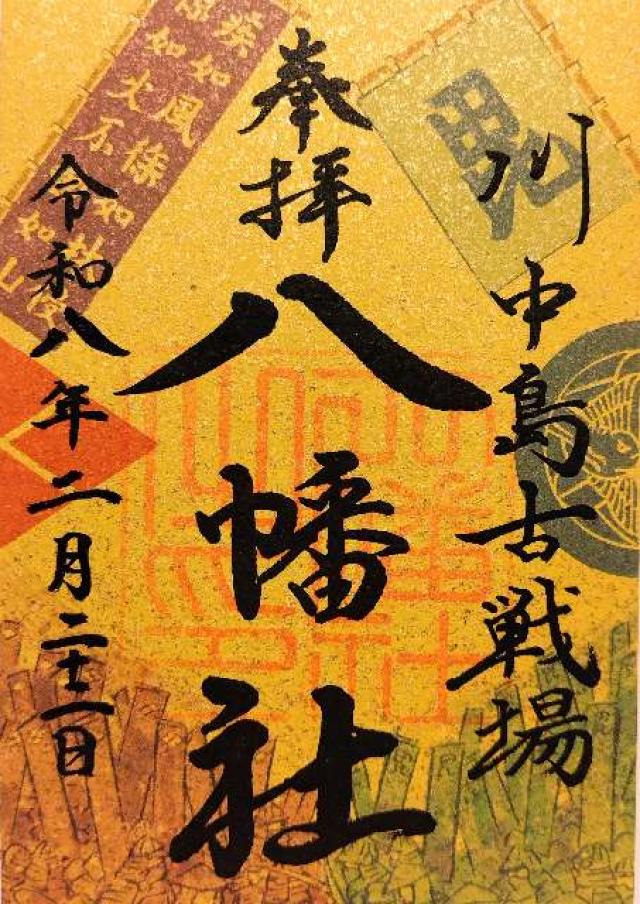 川中島古戦場
奉拝
八幡社
令和八年二月二十二日
毘
疾如風徐如林侵
掠如火不動如山